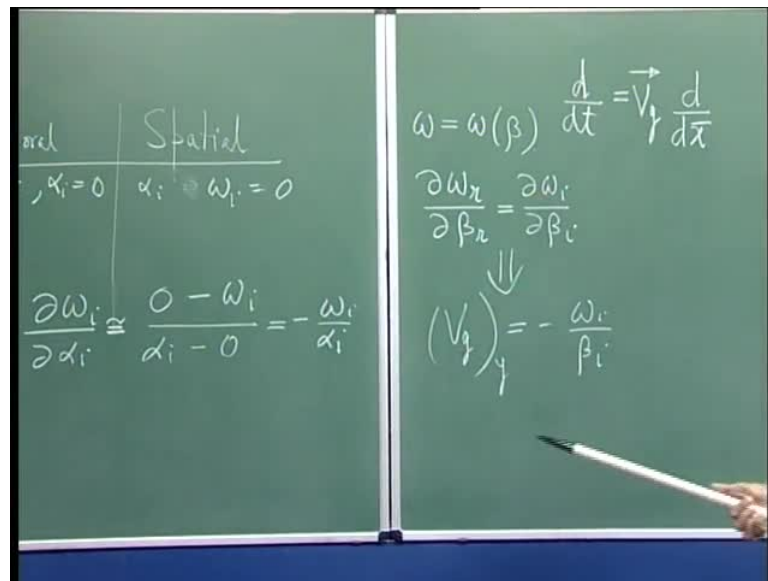 oral | Spatial
, αᵢ = 0 | αᵢ ωᵢ = 0
∂ωᵢ/∂αᵢ ≅ (0 − ωᵢ)/(αᵢ − 0) = − ωᵢ/αᵢ
ω = ω(β) d/dt = V⃗g d/dx̄
∂ωr/∂βr = ∂ωᵢ/∂βᵢ
⇓
(Vg)y = − ωᵢ/βᵢ